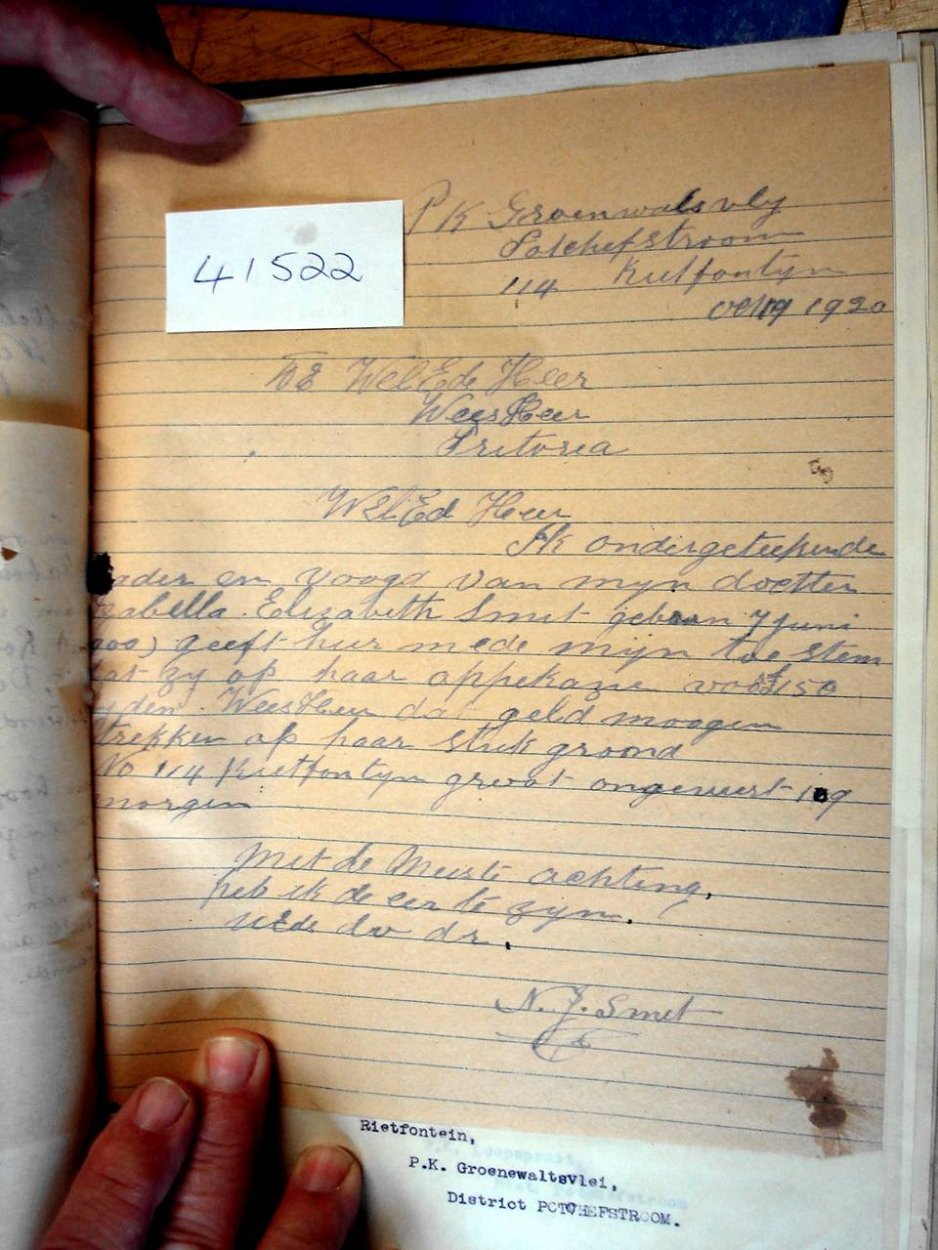 41522
P K Groenwalsvly
Potchefstroom
114 Rietfontyn
1920
WelEde Heer
WeesHeer
Pritoria
WelEd Heer
Ik ondergeteekende
ader en voogd van mijn docter
zabella. Elizabeth Smit geboren 7 juni
900) geeft hier mede mijn toe stem
dat zy op haar appekazie voor £150
yden. WeesHeer dat geld moogen
trekken op haar stuk grond
No 114 Rietfontyn groot ongeveert 109
morgen
Met de Meiste achting,
heb ik de eer te zyn.
UEde dw dr.
N. J. Smit
Rietfontein,
P.K. Groenewaltsvlei,
District POTCHEFSTROOM.